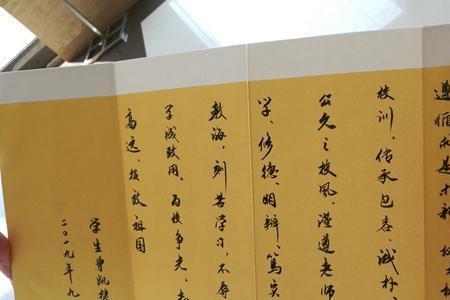 遵循求是
校训、传承包容、诚朴
公久之校风，谨遵老师
学、修德、明辩、笃实
教诲，刻苦学习，不辱
学成致用、为校争光、志
高远、报效祖国
学生曾凯
二〇一九年九